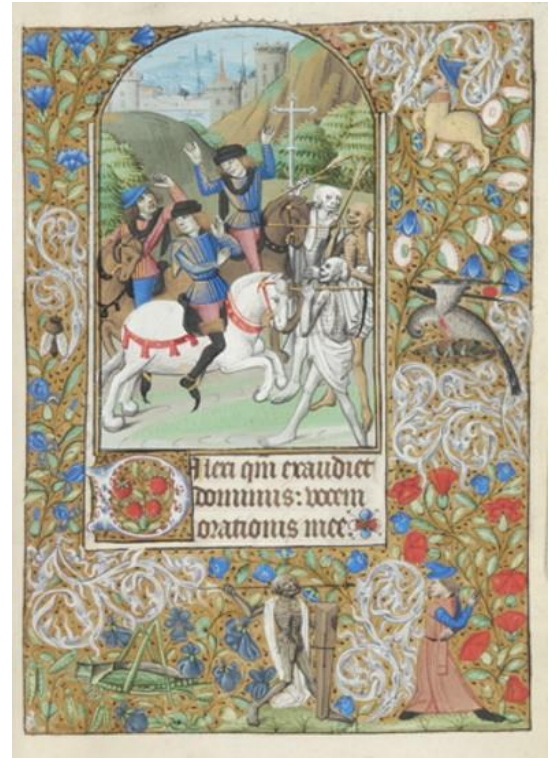 Dilexi qm exaudiet
dominus: vocem
orationis mee